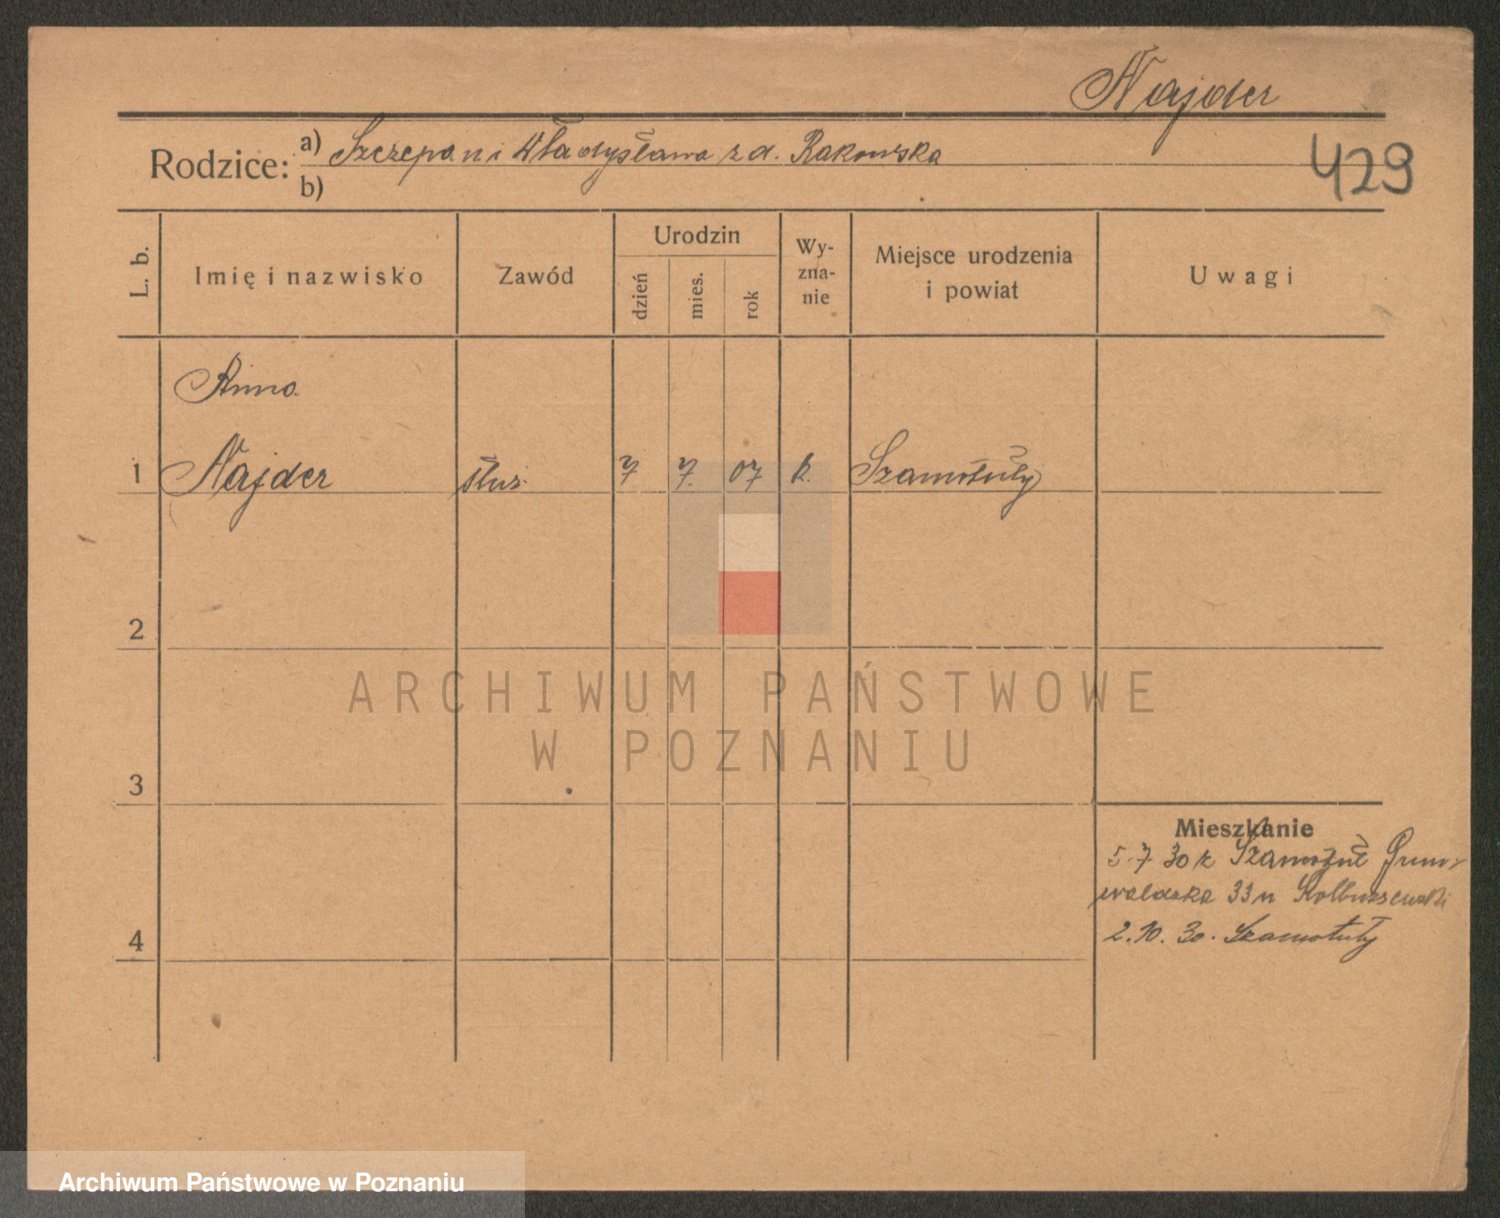 Najder
429
Rodzice: a) Szczepan i Władysława z d. Rakowska
b)
L. b.
Imię i nazwisko
Zawód
Urodzin
dzień
mies.
rok
Wy-
zna-
nie
Miejsce urodzenia
i powiat
Uwagi
Anna
1 Najder służ. 7 7. 07 k. Szamotuły
2
3
4
Mieszkanie
5.7 30 z Szamotuł Grun-
waldzka 33 u
2.10.30. Szamotuły
ARCHIWUM PAŃSTWOWE
W POZNANIU
Archiwum Państwowe w Poznaniu